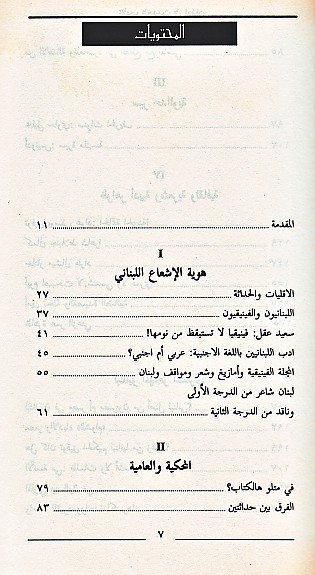 المحتويات
المقدمة ١١
I
هوية الإشعاع اللبناني
الاقليات والحداثة ٢٧
اللبنانيون والفينيقيون ٣٧
سعيد عقل: فينيقيا لا تستيقظ من نومها! ٤١
ادب اللبنانيين باللغة الاجنبية: عربي أم اجنبي؟ ٤٥
المجلة الفينيقية وأمازيغ وشعر ومواقف ولبنان ٥٥
لبنان شاعر من الدرجة الأولى
وناقد من الدرجة الثانية ٦١
II
المحكية والعامية
في متلو هالكتاب؟ ٧٩
الفرق بين حداثتين ٨٣
٧